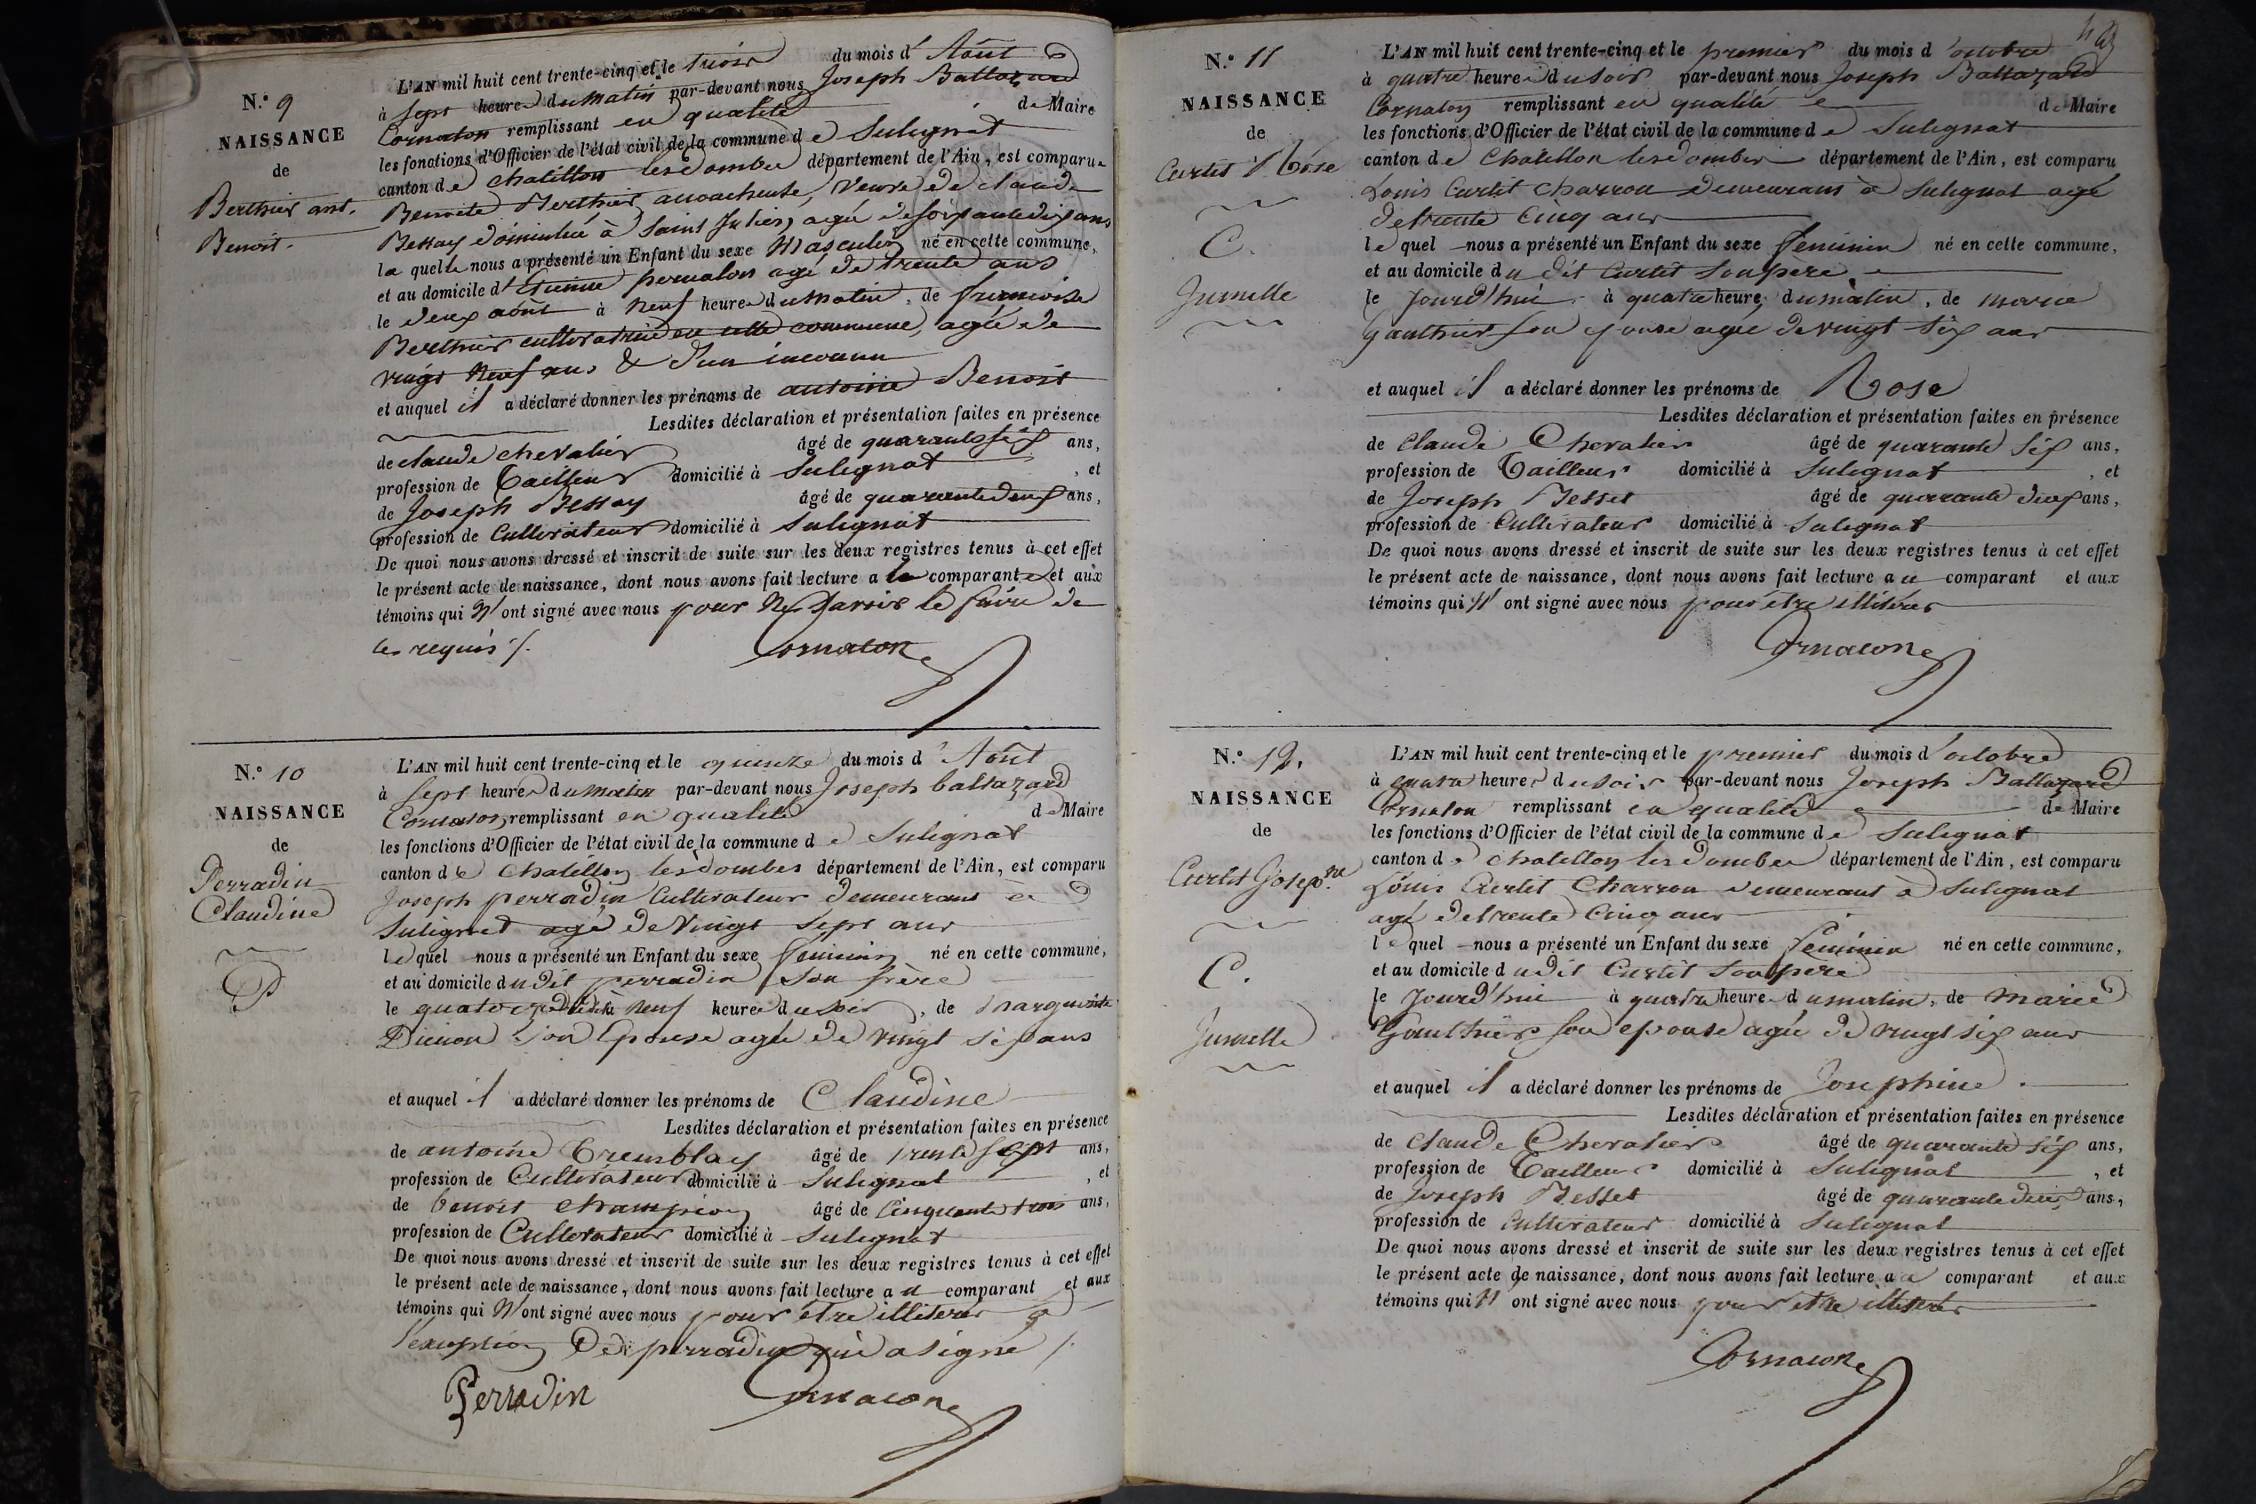 N.° 9
NAISSANCE
de
Berthier ant.
Benoit.
L'AN mil huit cent trente-cinq et le trois du mois d'Août
à sept heures du matin par-devant nous Joseph Baltazard
Cornaton remplissant en qualité de Maire
les fonctions d'Officier de l'état civil de la commune de Sulignat
canton de Chatillon les dombes département de l'Ain, est comparue
Benoite Berthier accoucheuse, veuve de claude
Bessay domicilié à Saint Julien, agée de soixante dix ans
laquelle nous a présenté un Enfant du sexe Masculin né en cette commune,
et au domicile d'Etienne pernalon agé de trente ans
le deux août à neuf heures du matin, de francoise
Berthier cultivatrice en cette commune, agée de
vingt neuf ans & d'un inconnu
et auquel il a déclaré donner les prénoms de antoine Benoit
Lesdites déclaration et présentation faites en présence
de claude chevalier âgé de quarante six ans,
profession de Tailleur domicilié à Sulignat, et
de Joseph Bessay âgé de quarante deux ans,
profession de Cultivateur domicilié à Sulignat
De quoi nous avons dressé et inscrit de suite sur les deux registres tenus à cet effet
le présent acte de naissance, dont nous avons fait lecture a la comparante et aux
témoins qui N'ont signé avec nous pour Ne Savoir le faire de
ce requis /.
Cornaton
N.° 10
NAISSANCE
de
Perradin
Claudine
P
L'AN mil huit cent trente-cinq et le quinze du mois d'Août
à sept heures du matin par-devant nous Joseph baltazard
Cornaton remplissant en qualité de Maire
les fonctions d'Officier de l'état civil de la commune de Sulignat
canton de Chatillon les dombes département de l'Ain, est comparu
Joseph perradin Cultivateur demeurant à
Sulignat agé de vingt sept ans
lequel nous a présenté un Enfant du sexe feminin né en cette commune,
et au domicile dudit perradin son frère
le quatorze dudit à neuf heures du soir, de Marguerite
Dienon son Epouse agée de vingt six ans
et auquel il a déclaré donner les prénoms de Claudine
Lesdites déclaration et présentation faites en présence
de antoine Tremblay âgé de trente sept ans,
profession de Cultivateur domicilié à Sulignat, et
de benoit champion âgé de Cinquante trois ans,
profession de Cultivateur domicilié à Sulignat
De quoi nous avons dressé et inscrit de suite sur les deux registres tenus à cet effet
le présent acte de naissance, dont nous avons fait lecture au comparant et aux
témoins qui N'ont signé avec nous pour être illiterés a
l'exception De perradin qui a signé /.
Perradin Cornaton
N.° 11
NAISSANCE
de
Curtit Rose
C.
Jumelle
L'AN mil huit cent trente-cinq et le premier du mois d'octobre
à quatre heures du soir par-devant nous Joseph Baltazard
Cornaton remplissant en qualité de Maire
les fonctions d'Officier de l'état civil de la commune de Sulignat
canton de Chatillon les dombes département de l'Ain, est comparu
Louis Curtit charron demeurant à Sulignat agé
de trente cinq ans
lequel nous a présenté un Enfant du sexe feminin né en cette commune,
et au domicile du dit Curtit son père
le Jourd'hui à quatre heures du matin, de marie
Gauthier son epouse agée de vingt six ans
et auquel il a déclaré donner les prénoms de Rose
Lesdites déclaration et présentation faites en présence
de Claude Chevalier âgé de quarante six ans,
profession de Tailleur domicilié à Sulignat, et
de Joseph Besset âgé de quarante deux ans,
profession de Cultivateur domicilié à Sulignat
De quoi nous avons dressé et inscrit de suite sur les deux registres tenus à cet effet
le présent acte de naissance, dont nous avons fait lecture au comparant et aux
témoins qui N'ont signé avec nous pour être illiterés
Cornaton
N.° 12.
NAISSANCE
de
Curtit Joseph.ne
C.
Jumelle
L'AN mil huit cent trente-cinq et le premier du mois d'octobre
à quatre heures du soir par-devant nous Joseph Baltazard
Cornaton remplissant en qualité de Maire
les fonctions d'Officier de l'état civil de la commune de Sulignat
canton de chatillon les dombes département de l'Ain, est comparu
Louis Curtit Charron demeurant à Sulignat
agé de trente Cinq ans
lequel nous a présenté un Enfant du sexe feminin né en cette commune,
et au domicile dudit Curtit son père
le Jourd'hui à quatre heures du matin, de marie
Gauthier son epouse agée de vingt six ans
et auquel il a déclaré donner les prénoms de Josephine.
Lesdites déclaration et présentation faites en présence
de Claude Chevalier âgé de quarante six ans,
profession de Tailleur domicilié à Sulignat, et
de Joseph Besset âgé de quarante deux ans,
profession de Cultivateur domicilié à Sulignat
De quoi nous avons dressé et inscrit de suite sur les deux registres tenus à cet effet
le présent acte de naissance, dont nous avons fait lecture au comparant et aux
témoins qui N'ont signé avec nous pour etre illiterés
Cornaton